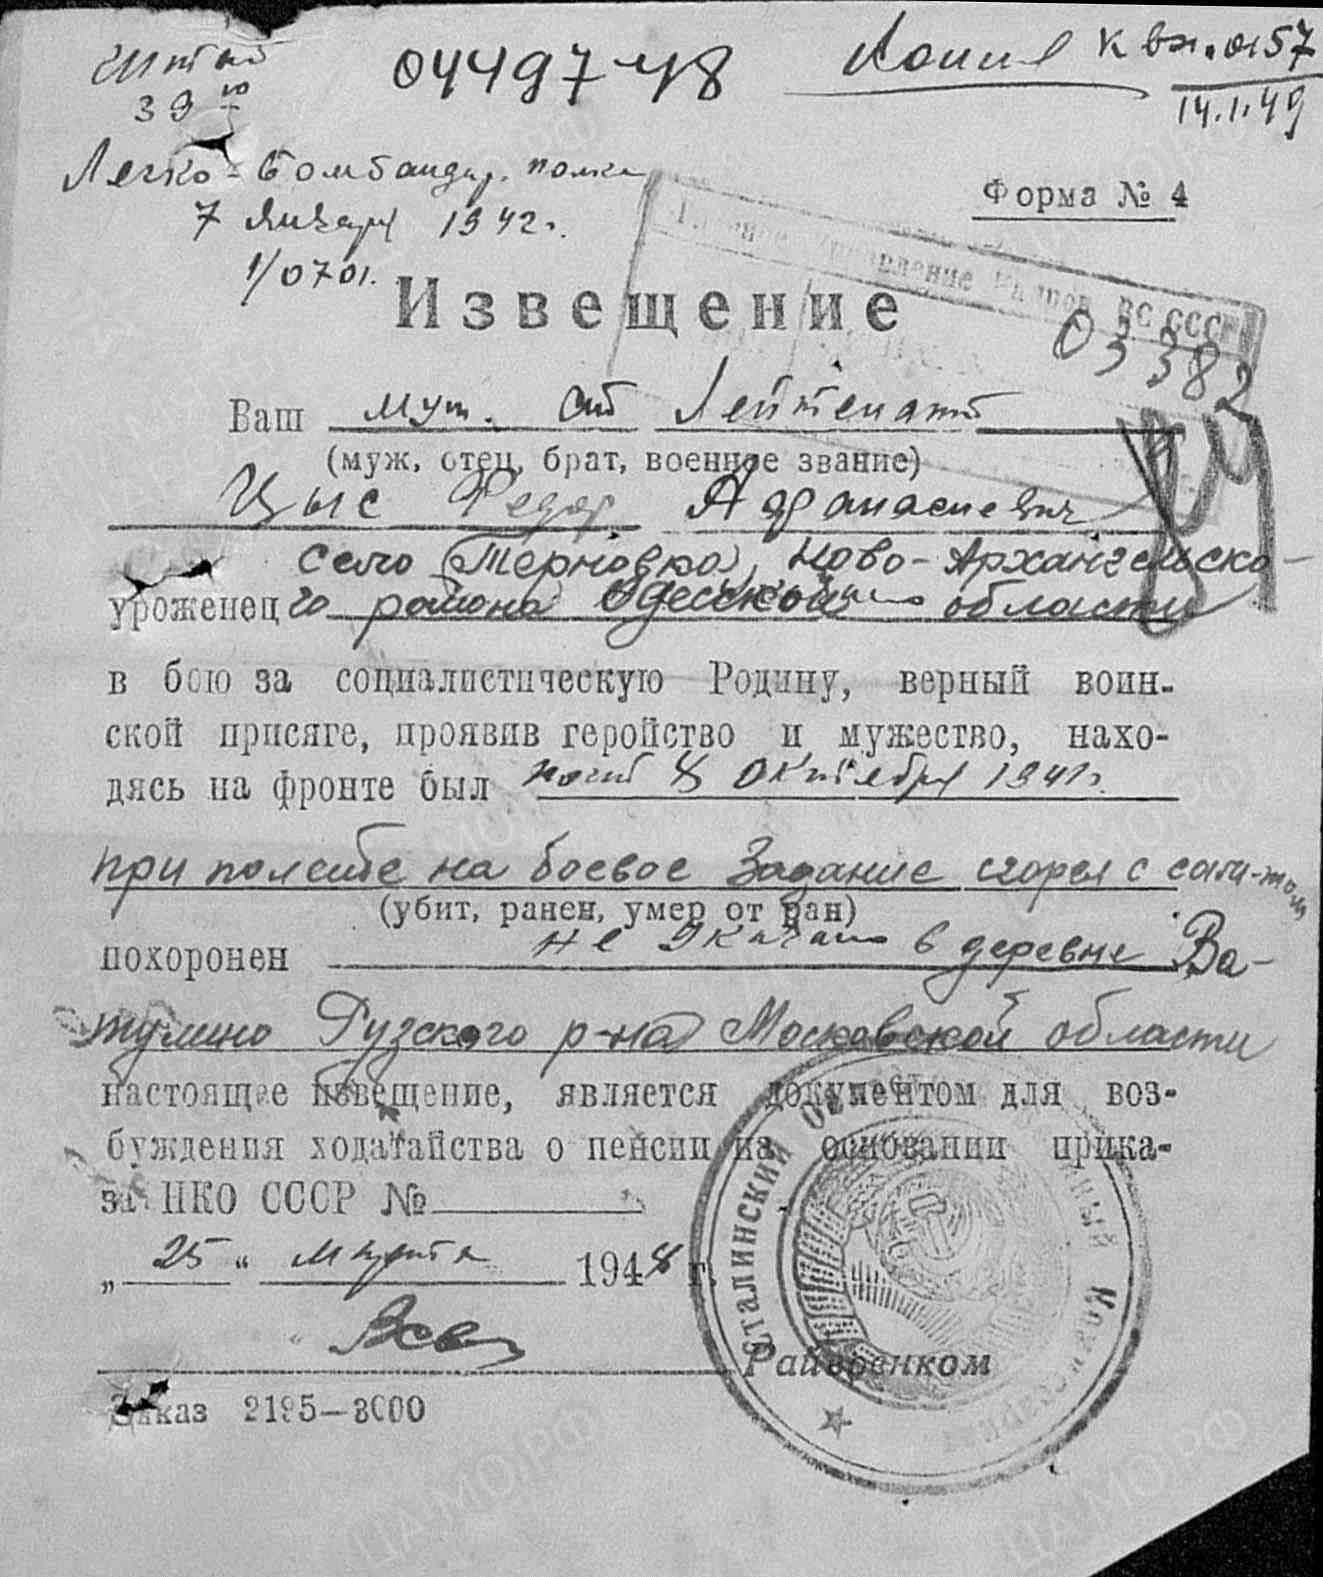 Штаб
39 го
Легко-Бомбандир. полка
7 Января 1942г.
1/0701.
04497 48
Копия к вх. 0157
14.1.49
Форма № 4
Главное управление Кадров ВС СССР
03382
Извещение
Ваш муж. Ст Лейтенант
(муж, отец, брат, военное звание)
Цыс Федор Афанасиевич
село Терновка, Ново-Архангельско-
уроженец го района Одесской области
в бою за социалистическую Родину, верный воин-
ской присяге, проявив геройство и мужество, нахо-
дясь на фронте был погиб 8 Октября 1941г.
при полете на боевое Задание сгорел с
(убит, ранен, умер от ран)
похоронен в деревне Ва-
тулино Рузского р-на Московской области
настоящее извещение, является документом для воз-
буждения ходатайства о пенсии на основании прика-
за НКО СССР №
„ 25 “ марта 1948 г.
Райвоенком
Заказ 2195—3000
СТАЛИНСКИЙ
ЦА МО.РФ